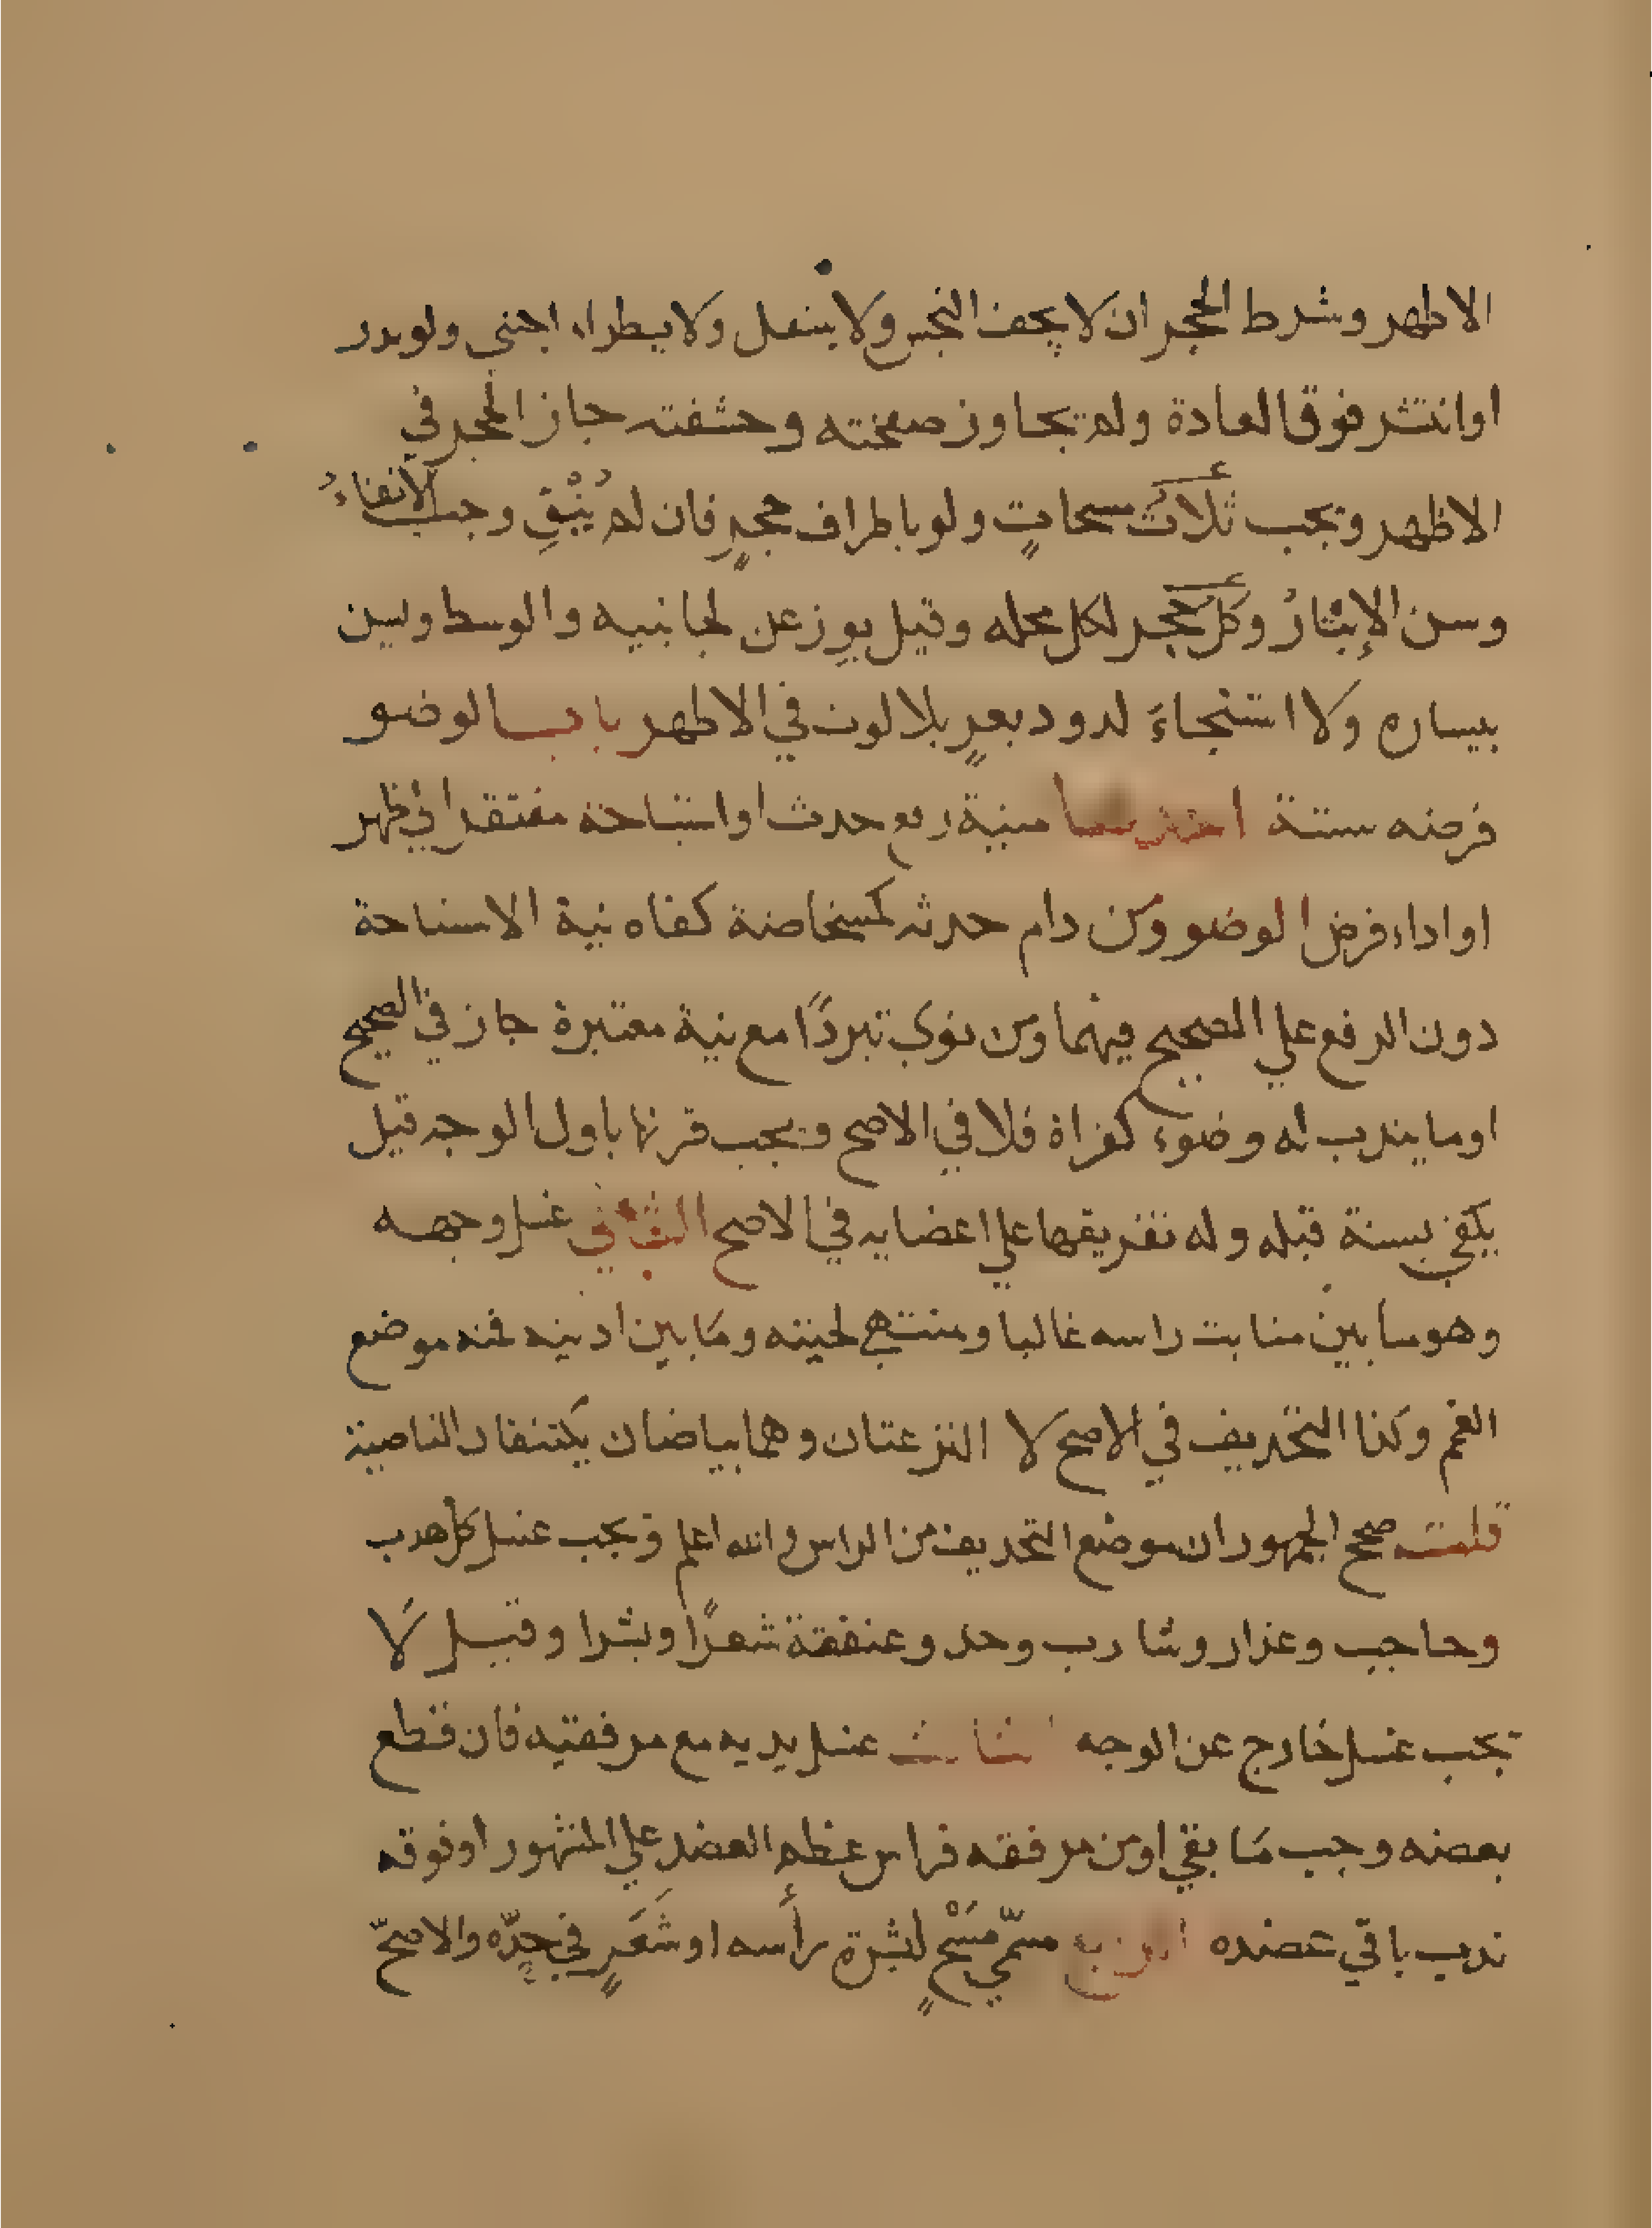 الاظهر وشرط الحجر ان لا يجف النجس ولا ينتقل ولا يطراء اجنبي ولو ندر
او انتشر فوق العادة ولم تجاوز صفحته وحشفته جاز الحجر في
الاظهر ويجب ثلاث مسحاتٍ ولو باطراف حجرٍ فان لم يُنْقِ وجب الانقاءُ
وسن الإيتارُ وكل حجر لكل محله وقيل يوزعن لجانبيه والوسط ويسن
بيساره ولا استنجاءَ لدود وبعرٍ بلا لوث في الاظهر باب الوضو
فرضه ستة احدها نية رفع حدث او استباحة مفتقر الي طهر
او اداء فرض الوضو ومن دام حدثه كمستحاضة كفاه نية الاستباحة
دون الرفع علي الصحيح فيهما ومن نوي تبردًا مع نية معتبرة جاز في الصحيح
او ما يندب له وضوء كقراة فلا في الاصح ويجب قرنها باول الوجه قيل
يكفي بسنة قبله وله تفريقها علي اعضايه في الاصح الثاني غسل وجهه
وهو ما بين منابت راسه غالبا ومنتهي لحيته ومَا بين اذنيه فمنه موضع
الغمم وكذا التحذيف في الاصح لا النزعتان وهما بياضان يكتنفان الناصية
قلت صحح الجمهور ان موضع التحذيف من الراس والله اعلم ويجب غسل كل هدب
وحاجب وعذار وشارب وخد وعنفقة شعرًا وبشرا وقيل لا
يجب غسل خارج عن الوجه الثالث غسل يديه مع مرفقيه فان قطع
بعضه وجب مَا بقي او من مرفقه فراس عظم العضد علي المشهور او فوقه
ندب باقي عضده الرابع مسمّي مَسْحٍ لبشرة رأسه او شَعَرٍ في حدّه والاصحّ